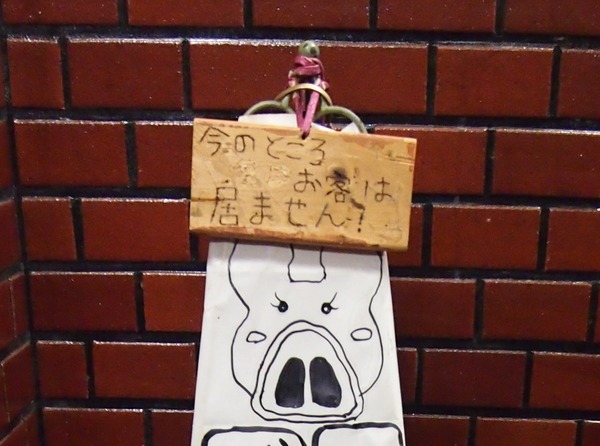 今のところ
お客は
居ません?